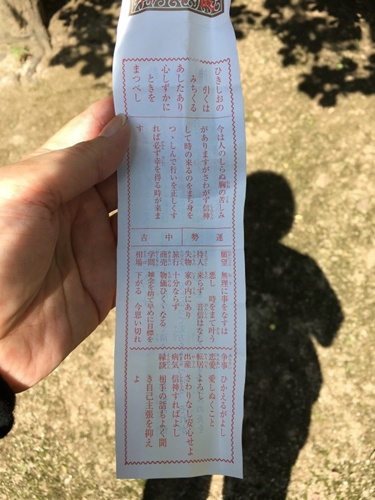 ひきしおの
引くは
みちくる
あしたあり
心しずかに
ときを
まつべし
今は人のしらぬ胸の苦しみ
がありますがさわがず信神
して時の来るのをまち身を
つゝしんで行いを正しくす
れば必ず幸を得る時が来ま
す
運勢 中吉
願望 無理に事をなすは
悪し 時をまて叶う
待人 来らず 音信はなし
失物 家の内にあり
旅行 十分ならず
商売 物価ひくくなる
学問 雑念を捨て早めに目標を
相場 下がる 今思い切れ
争事 ひかえるがよし
恋愛 愛しぬくこと
転居 よろし
出産 さわりなし安心せよ
病気 信神すればよし
縁談 相手の話もよく聞
き自己主張を抑え
よ